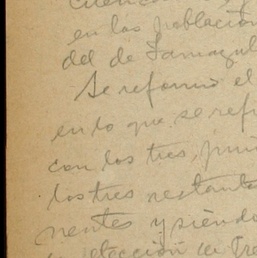 en las población
del de Tamazul
Se reformó el
en lo que se refi
con los tres, pun
los tres restante
nentes y siendo
elección de Pre